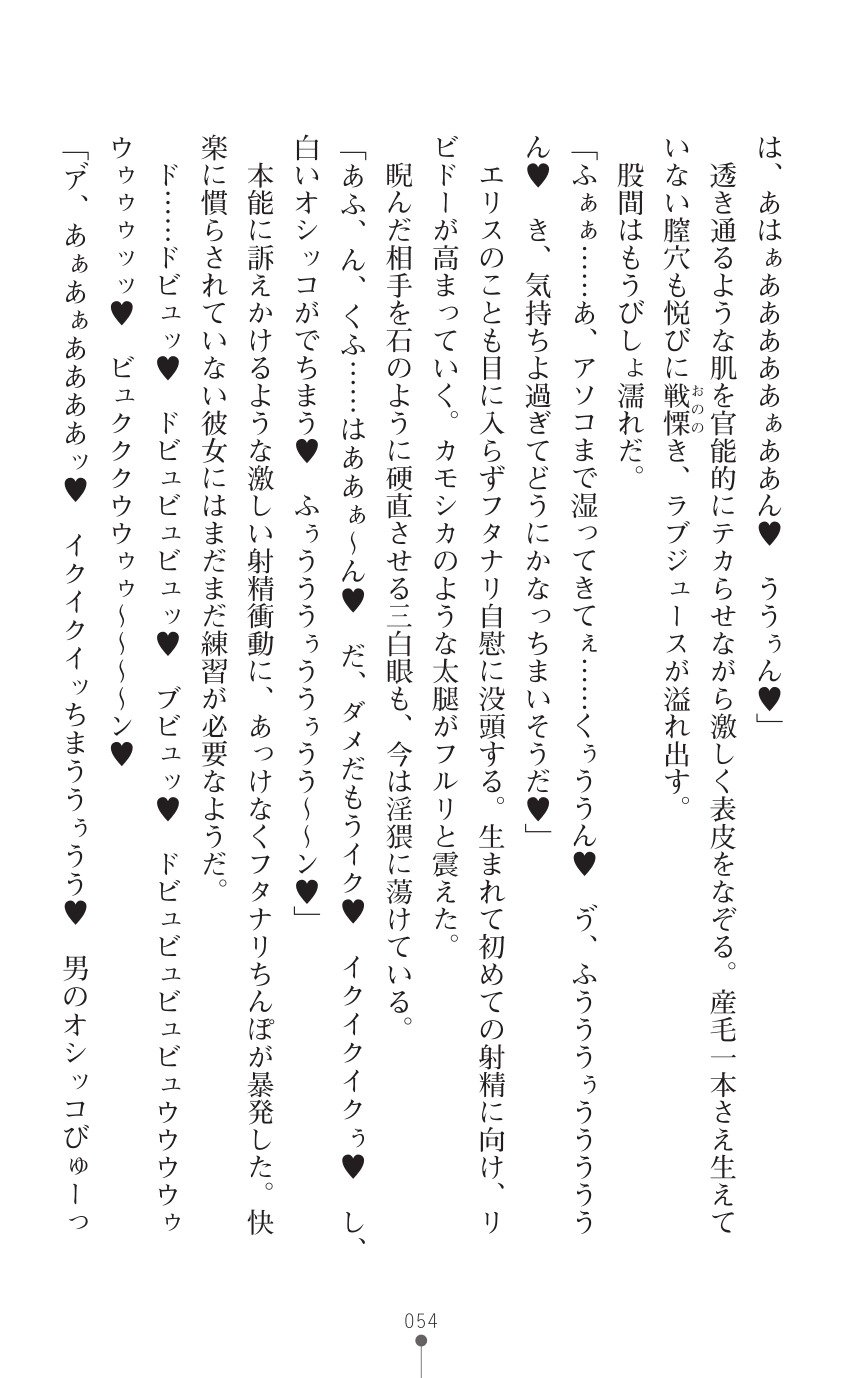 は、あはぁあああああぁああん♥　ううぅん♥」
　透き通るような肌を官能的にテカらせながら激しく表皮をなぞる。産毛一本さえ生えて
いない膣穴も悦びに戦慄き、ラブジュースが溢れ出す。
おのの
　股間はもうびしょ濡れだ。
「ふぁぁ……あ、アソコまで湿ってきてぇ……くぅううん♥　ゔ、ふうううぅううううう
ん♥　き、気持ちよ過ぎてどうにかなっちまいそうだ♥」
　エリスのことも目に入らずフタナリ自慰に没頭する。生まれて初めての射精に向け、リ
ビドーが高まっていく。カモシカのような太腿がフルリと震えた。
　睨んだ相手を石のように硬直させる三白眼も、今は淫猥に蕩けている。
「あふ、ん、くふ……はああぁ～ん♥　だ、ダメだもうイク♥　イクイクイクぅ♥　し、
白いオシッコがでちまう♥　ふぅうううぅううぅうう～～ン♥」
　本能に訴えかけるような激しい射精衝動に、あっけなくフタナリちんぽが暴発した。快
楽に慣らされていない彼女にはまだまだ練習が必要なようだ。
　ド……ドビュッ♥　ドビュビュビュッ♥　ブビュッ♥　ドビュビュビュビュウウウウゥ
ウゥゥゥッッ♥　ビュクククウウゥゥ～～～～ン♥
「ア゛、あぁあぁああああッ♥　イクイクイッちまううぅうう♥　男のオシッコびゅーっ
054